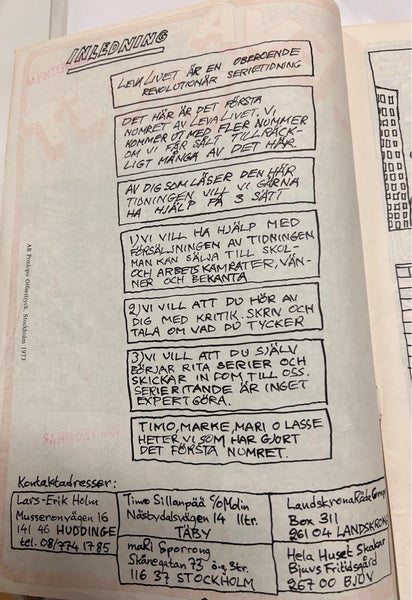 INLEDNING
LEVA LIVET ÄR EN OBEROENDE
REVOLUTIONÄR SERIETIDNING
DET HÄR ÄR DET FÖRSTA
NUMRET AV LEVA LIVET. VI
KOMMER UT MED FLER NUMMER
OM VI FÅR SÅLT TILLRÄCK-
LIGT MÅNGA AV DET HÄR
AV DIG SOM LÄSER DEN HÄR
TIDNINGEN VILL VI GÄRNA
HA HJÄLP PÅ 3 SÄTT
1) VI VILL HA HJÄLP MED
FÖRSÄLJNINGEN AV TIDNINGEN
MAN KAN SÄLJA TILL SKOL-
OCH ARBETSKAMRATER, VÄN-
NER OCH BEKANTA
2) VI VILL ATT DU HÖR AV
DIG MED KRITIK. SKRIV OCH
TALA OM VAD DU TYCKER
3) VI VILL ATT DU SJÄLV
BÖRJAR RITA SERIER OCH
SKICKAR IN DOM TILL OSS.
SERIERITANDE ÄR INGET
EXPERTGÖRA.
TIMO, MARKE, MARI O LASSE
HETER VI SOM HAR GJORT
DET FÖRSTA NUMRET.
AB Prinkopy Offsettryck, Stockholm 1973
Kontaktadresser:
Lars-Erik Holm
Musseronvägen 16
141 46 HUDDINGE
tel. 08/774 17 85
Timo Sillanpää c/o Molin
Näsbydalsvägen 14 11tr.
TÄBY
maRi Sporrong
Skånegatan 73 ö.g. 3tr.
116 37 STOCKHOLM
Landskrona
Box 311
261 04 LANDSKRONA
Hela Huset Skakar
Bjuvs Fritidsgård
267 00 BJUV